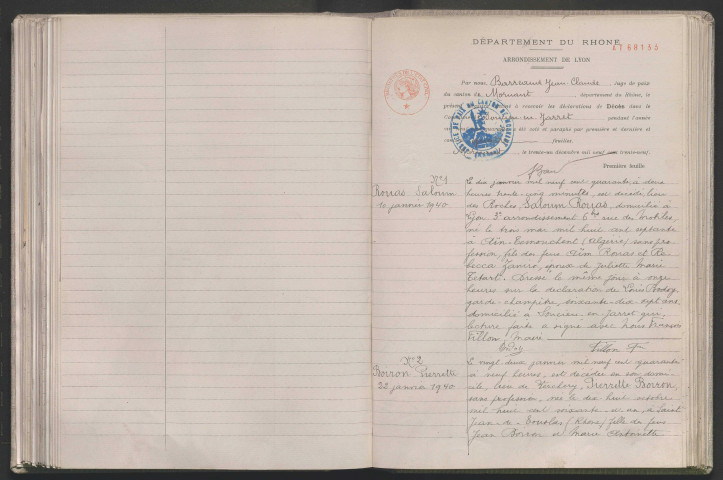 DÉPARTEMENT DU RHONE
ARRONDISSEMENT DE LYON
Par nous, Barreaud Jean Claude Juge de paix
du canton de Mornant, département du Rhône, le
présent à recevoir les déclarations de Décès dans le
en Jarret pendant l'année
a été coté et paraphé par première et dernière et
feuilles.
le trente-un décembre mil neuf cent trente-neuf.
Première feuille
N°1
Rouas Saloum
10 janvier 1940
Le dix janvier mil neuf cent quarante, à deux
heures trente cinq minutes, est décédé, lieu
des Roches, Saloum Rouas, domicilié à
Lyon 3e arrondissement 6 rue des
né le trois mai mil huit cent septante
à Aïn-Temouchent (Algérie) sans pro
fession, fils des feus Rouas et Re
becca, époux de Juliette Marie
. Dressé le même jour à onze
heures sur la déclaration de Louis
garde-champêtre, soixante-dix sept ans,
domicilié à Soucieu en Jarret qui,
lecture faite a signé avec Nous
Villon, Maire
Villon F
N°2
Boiron Pierrette
22 janvier 1940
Le vingt deux janvier mil neuf cent quarante
à neuf heures, est décédée en son domi
cile, lieu de Verchery, Pierrette Boiron,
sans profession, née le dix huit octobre
mil huit cent soixante et un, à Saint
Jean-de-Touslas (Rhône) fille des feus
Jean Boiron et Marie Antoinette